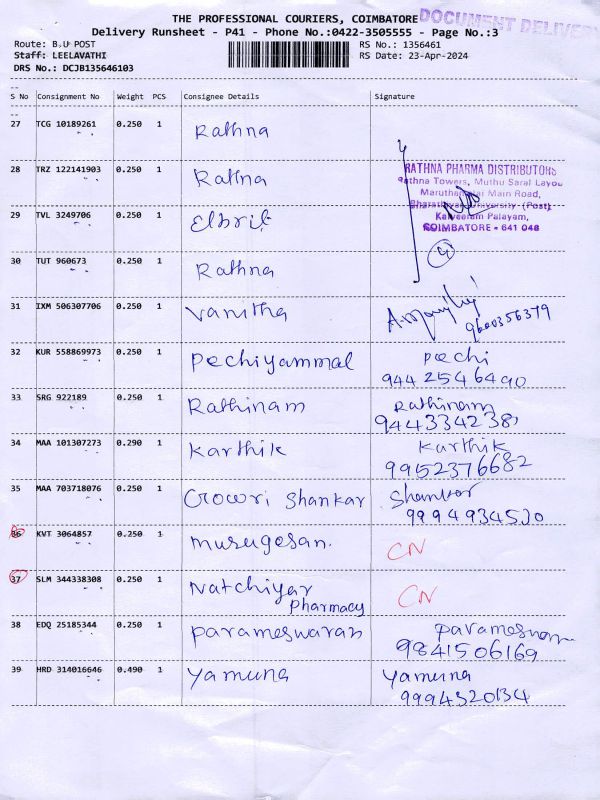 THE PROFESSIONAL COURIERS, COIMBATORE
DOCUMENT DELIVERY
Delivery Runsheet - P41 - Phone No.:0422-3505555 - Page No.:3
Route: B.U POST
RS No.: 1356461
Staff: LEELAVATHI
RS Date: 23-Apr-2024
DRS No.: DCJB135646103
S No Consignment No Weight PCS Consignee Details Signature
27 TCG 10189261 0.250 1 Rathna
28 TRZ 122141903 0.250 1 Rathna
RATHNA PHARMA DISTRIBUTORS
Rathna Towers, Muthu Saral Layou
Maruthamalai Main Road,
Bharathiyar University (Post),
Kalveeram Palayam,
COIMBATORE - 641 046
29 TVL 3249706 0.250 1 Elbrit
30 TUT 960673 0.250 1 Rathna
4
31 IXM 506307706 0.250 1 Vanitha
9600356379
32 KUR 558869973 0.250 1 Pechiyammal Pechi
9442546490
33 SRG 922189 0.250 1 Rathinam Rathinam
9443342381
34 MAA 101307273 0.290 1 Karthik Karthik
9952376682
35 MAA 703718076 0.250 1 Gowri Shankar Shankar
9994934530
36 KVT 3064857 0.250 1 Murugesan. CN
37 SLM 344338308 0.250 1 Natchiyar CN
Pharmacy
38 EDQ 25185344 0.250 1 Parameswaran Parameswaran
9841506169
39 HRD 314016646 0.490 1 Yamuna Yamuna
9994320134